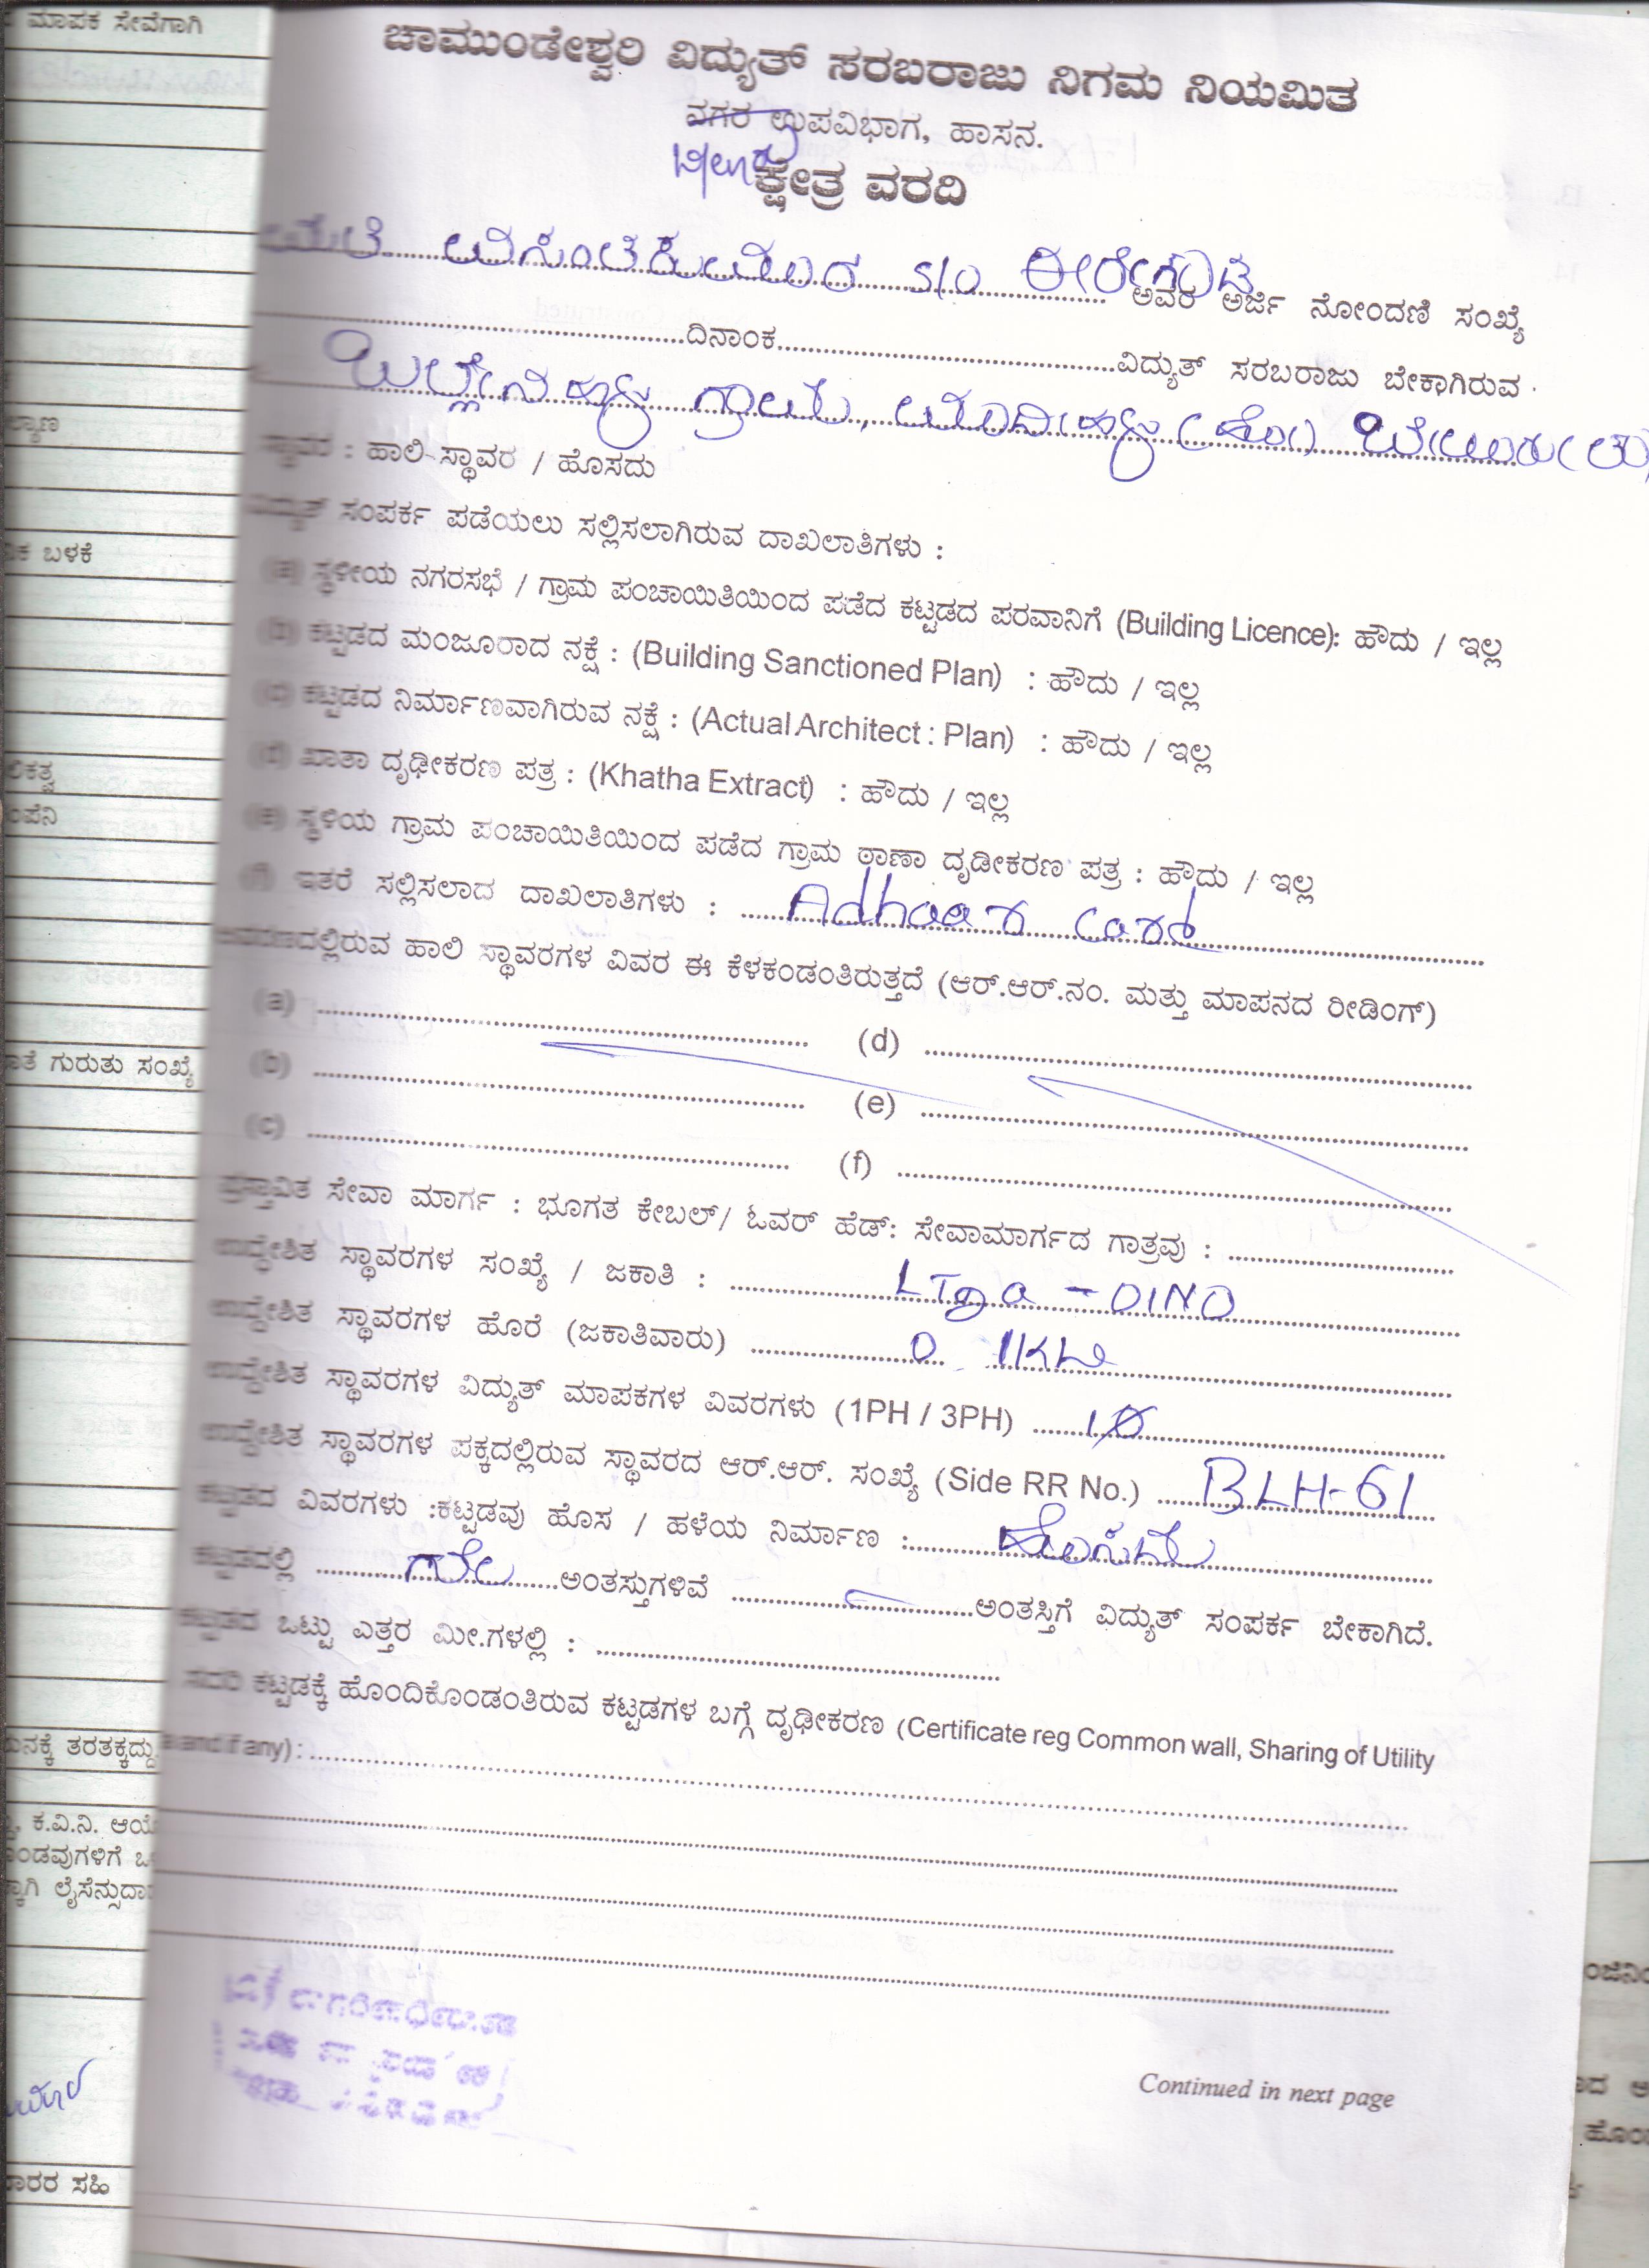 ಮಾಪಕ ಸೇವೆಗಾಗಿ
ಚಾಮುಂಡೇಶ್ವರಿ ವಿದ್ಯುತ್ ಸರಬರಾಜು ನಿಗಮ ನಿಯಮಿತ
ನಗರ ಉಪವಿಭಾಗ, ಹಾಸನ.
ಕ್ಷೇತ್ರ ವರದಿ
S/O ಅವರ ಅರ್ಜಿ ನೋಂದಣಿ ಸಂಖ್ಯೆ
ದಿನಾಂಕ ವಿದ್ಯುತ್ ಸರಬರಾಜು ಬೇಕಾಗಿರುವ
ಗ್ರಾಮ, ಮಾದೀಹಳ್ಳಿ (ಹೋ) ಬೇಲೂರು (ತಾ
ಸ್ಥಾವರ : ಹಾಲಿ ಸ್ಥಾವರ / ಹೊಸದು
ವಿದ್ಯುತ್ ಸಂಪರ್ಕ ಪಡೆಯಲು ಸಲ್ಲಿಸಲಾಗಿರುವ ದಾಖಲಾತಿಗಳು :
(a) ಸ್ಥಳೀಯ ನಗರಸಭೆ / ಗ್ರಾಮ ಪಂಚಾಯಿತಿಯಿಂದ ಪಡೆದ ಕಟ್ಟಡದ ಪರವಾನಿಗೆ (Building Licence): ಹೌದು / ಇಲ್ಲ
(b) ಕಟ್ಟಡದ ಮಂಜೂರಾದ ನಕ್ಷೆ : (Building Sanctioned Plan) : ಹೌದು / ಇಲ್ಲ
(c) ಕಟ್ಟಡದ ನಿರ್ಮಾಣವಾಗಿರುವ ನಕ್ಷೆ : (Actual Architect : Plan) : ಹೌದು / ಇಲ್ಲ
(d) ಖಾತಾ ದೃಢೀಕರಣ ಪತ್ರ : (Khatha Extract) : ಹೌದು / ಇಲ್ಲ
(e) ಸ್ಥಳಿಯ ಗ್ರಾಮ ಪಂಚಾಯಿತಿಯಿಂದ ಪಡೆದ ಗ್ರಾಮ ಠಾಣಾ ದೃಡೀಕರಣ ಪತ್ರ : ಹೌದು / ಇಲ್ಲ
(f) ಇತರೆ ಸಲ್ಲಿಸಲಾದ ದಾಖಲಾತಿಗಳು : Adhaar Card
ಆವರಣದಲ್ಲಿರುವ ಹಾಲಿ ಸ್ಥಾವರಗಳ ವಿವರ ಈ ಕೆಳಕಂಡಂತಿರುತ್ತದೆ (ಆರ್.ಆರ್.ನಂ. ಮತ್ತು ಮಾಪನದ ರೀಡಿಂಗ್)
(a) (d)
(b) (e)
(c) (f)
ಪ್ರಸ್ತಾವಿತ ಸೇವಾ ಮಾರ್ಗ : ಭೂಗತ ಕೇಬಲ್/ ಓವರ್ ಹೆಡ್: ಸೇವಾಮಾರ್ಗದ ಗಾತ್ರವು :
ಉದ್ದೇಶಿತ ಸ್ಥಾವರಗಳ ಸಂಖ್ಯೆ / ಜಕಾತಿ : - 01NO
ಉದ್ದೇಶಿತ ಸ್ಥಾವರಗಳ ಹೊರೆ (ಜಕಾತಿವಾರು) 0.1KW
ಉದ್ದೇಶಿತ ಸ್ಥಾವರಗಳ ವಿದ್ಯುತ್ ಮಾಪಕಗಳ ವಿವರಗಳು (1PH / 3PH) 1Ø
ಉದ್ದೇಶಿತ ಸ್ಥಾವರಗಳ ಪಕ್ಕದಲ್ಲಿರುವ ಸ್ಥಾವರದ ಆರ್.ಆರ್. ಸಂಖ್ಯೆ (Side RR No.) BLH-61
ಕಟ್ಟಡದ ವಿವರಗಳು :ಕಟ್ಟಡವು ಹೊಸ / ಹಳೆಯ ನಿರ್ಮಾಣ : ಹೊಸದು
ಕಟ್ಟಡದಲ್ಲಿ ಅಂತಸ್ತುಗಳಿವೆ ಅಂತಸ್ತಿಗೆ ವಿದ್ಯುತ್ ಸಂಪರ್ಕ ಬೇಕಾಗಿದೆ.
ಕಟ್ಟಡದ ಒಟ್ಟು ಎತ್ತರ ಮೀ.ಗಳಲ್ಲಿ :
ಸದರಿ ಕಟ್ಟಡಕ್ಕೆ ಹೊಂದಿಕೊಂಡಂತಿರುವ ಕಟ್ಟಡಗಳ ಬಗ್ಗೆ ದೃಢೀಕರಣ (Certificate reg Common wall, Sharing of Utility
and if any) :
Continued in next page
ಬಳಕೆ
ಗುರುತು ಸಂಖ್ಯೆ
ತರತಕ್ಕದ್ದು
ಕ.ವಿ.ನಿ.
ಸಹಿ